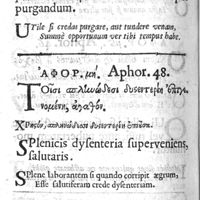 purgandum.
Utile si credas purgare, aut tundere venam,
Summè opportunum ver tibi tempus habe.
ΑΦΟΡ. μη. Aphor. 48.
Τοῖσι σπληνώδεσι δυσεντερίη ἐπιγι-
νομένη, ἀγαθόν.
Χρηστὸν, σπληνώδεσσι δυσεντερίη
Splenicis dysenteria superveniens,
salutaris.
Splene laborantem si quando corripit ægrum,
Esse salutiferam crede dysenteriam.